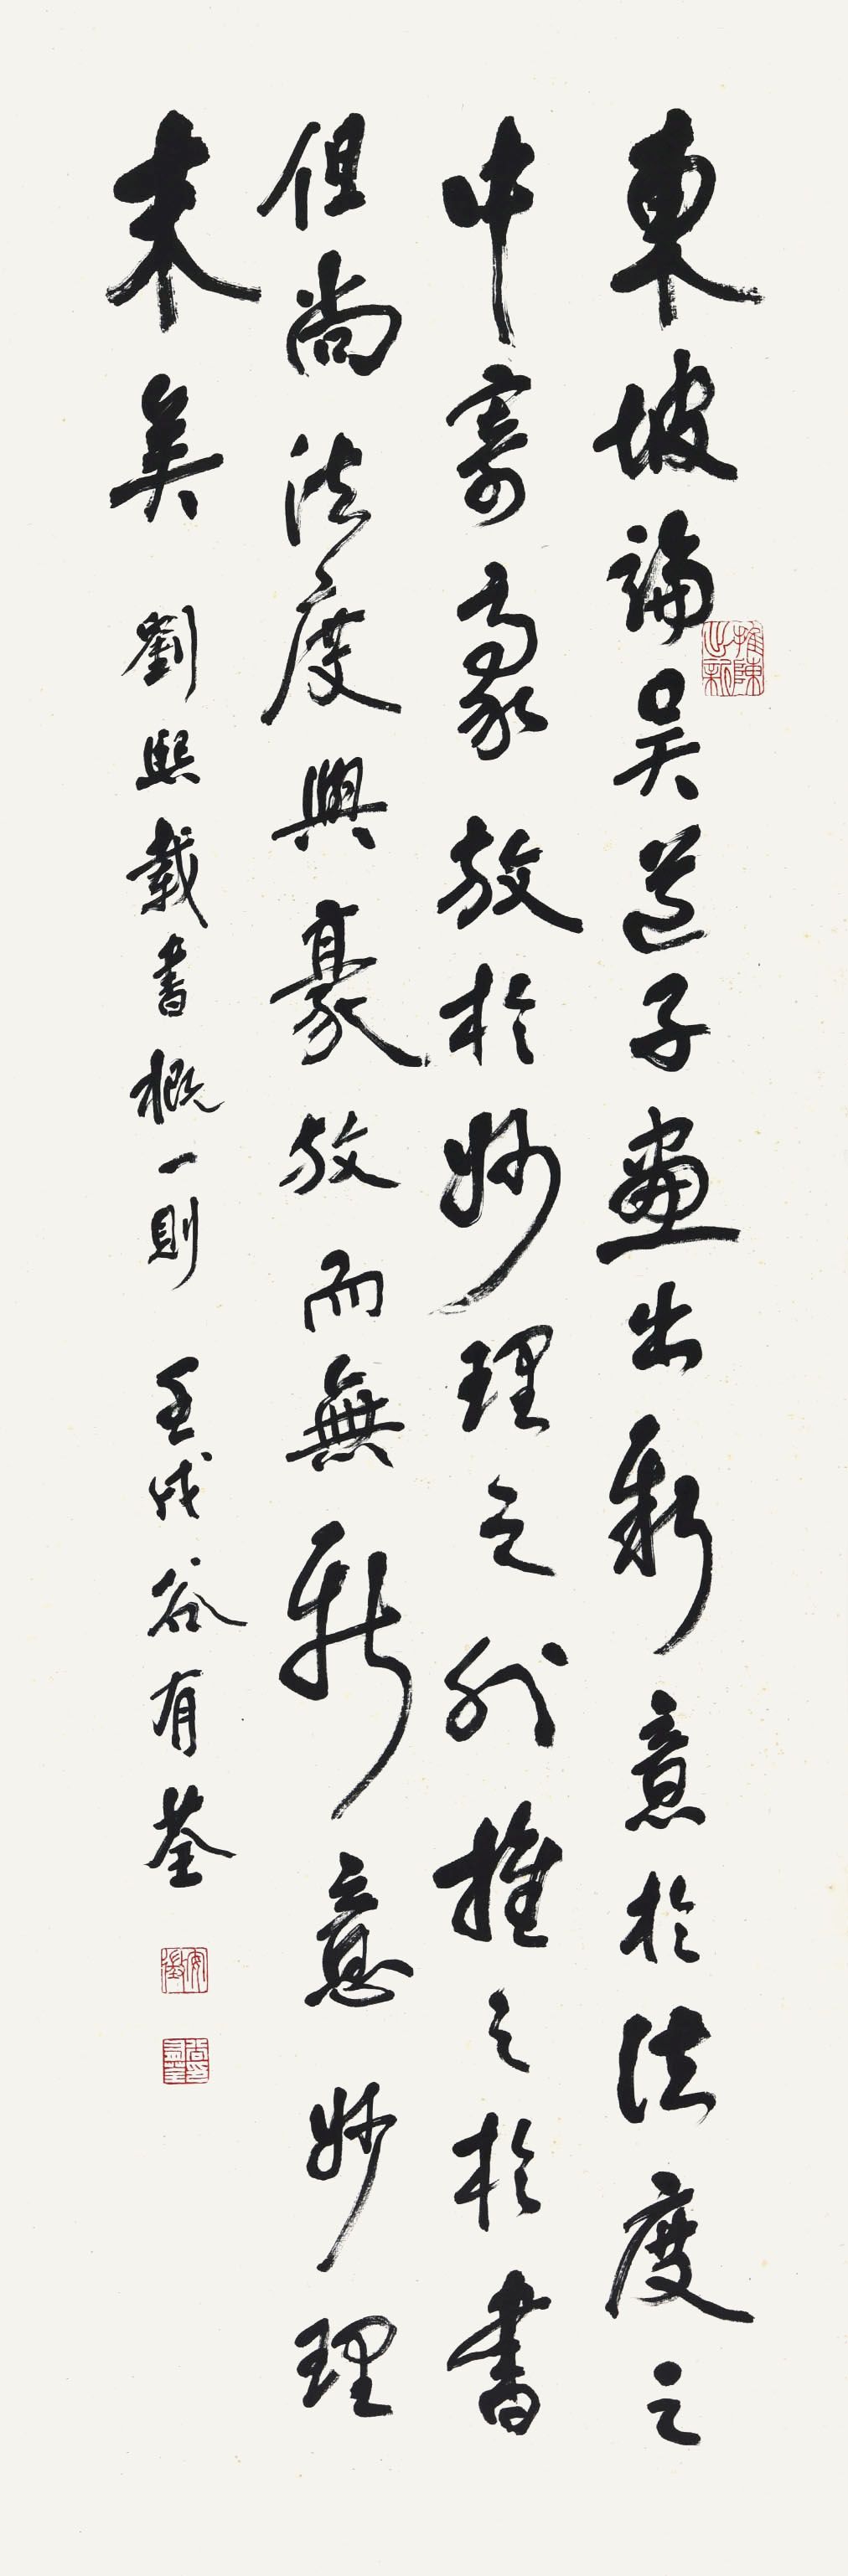 東坡論吳道子畫出新意於法度之
中寄豪放於妙理之外推之於書
但尚法度與豪放而無新意妙理
未矣 劉熙載書概一則 壬戌 谷有荃
推陳出新